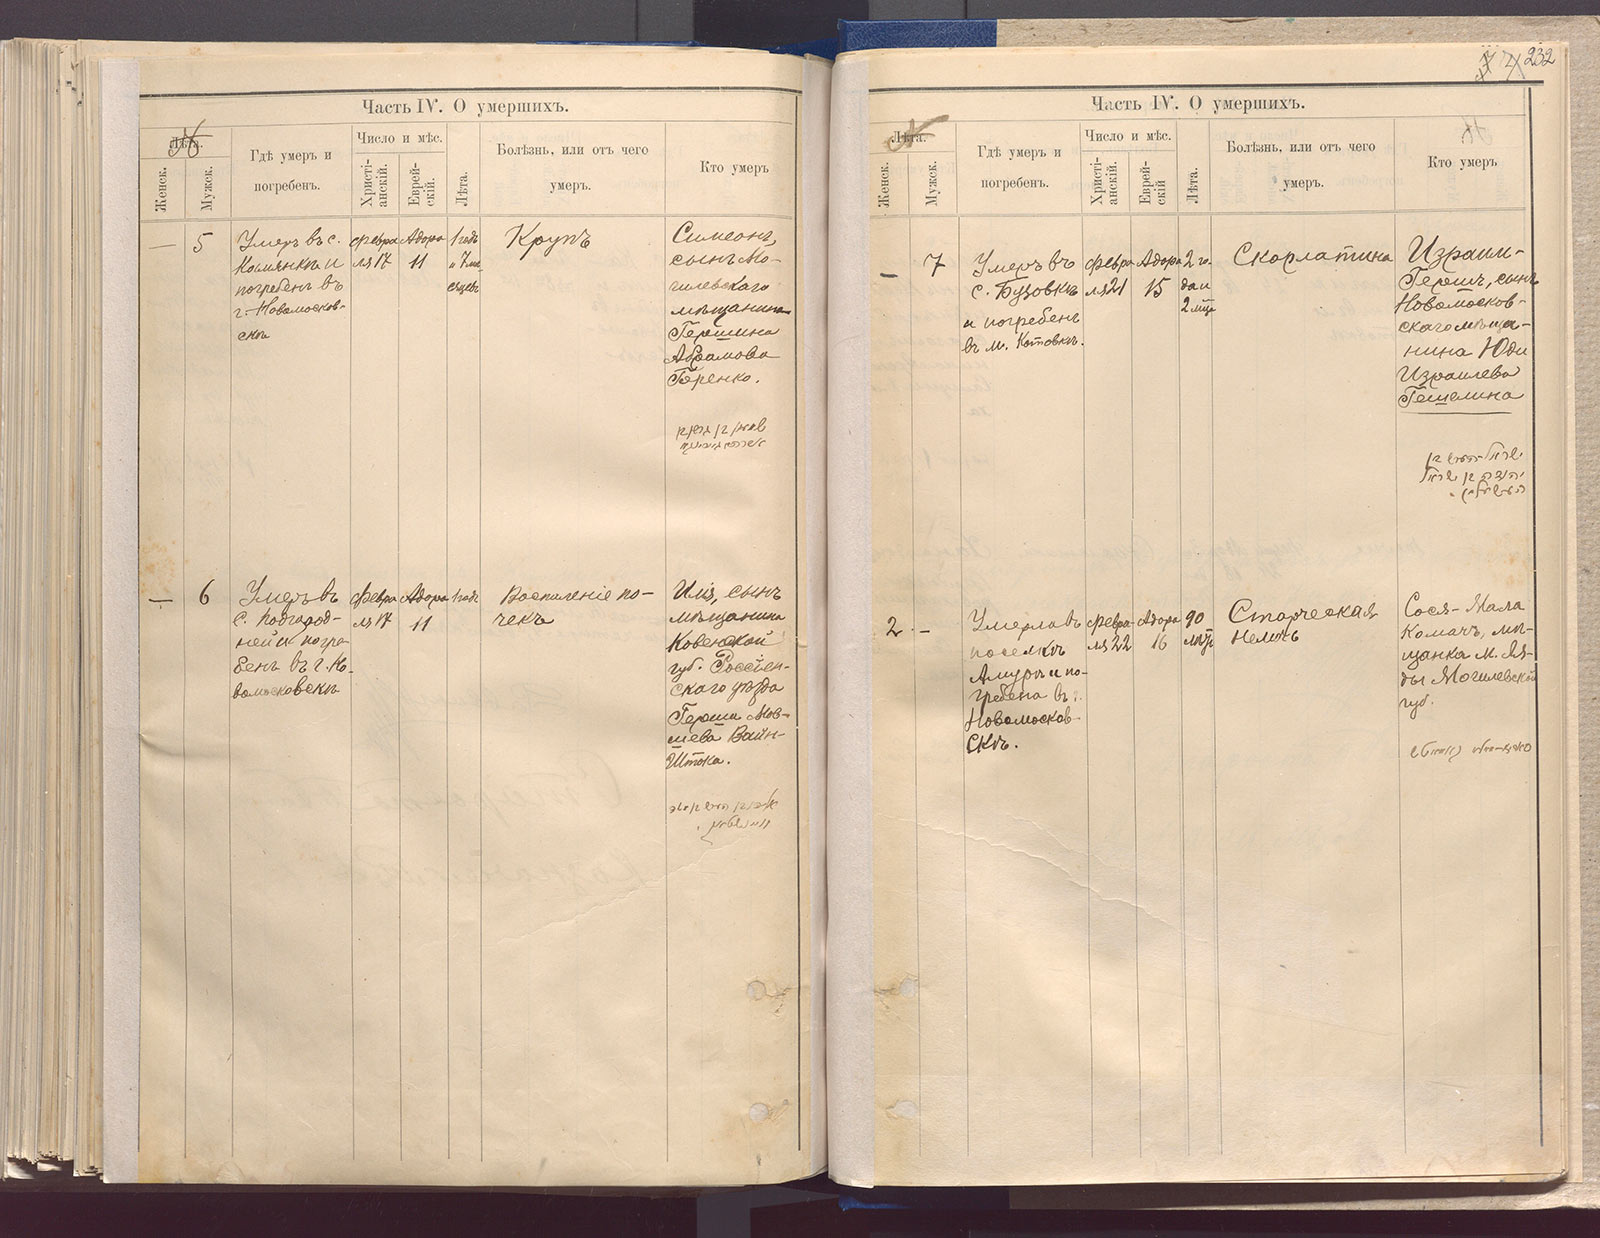 Часть IV. О умершихъ.
Лѣта.
Женск.
Мужск.
Гдѣ умеръ и
погребенъ.
Число и мѣс.
Христі-
анскій.
Еврей-
скій.
Лѣта.
Болѣзнь, или отъ чего
умеръ.
Кто умеръ
— 5
Умеръ въ с.
погребенъ въ
г. Новомосков-
скѣ
Февра
ля 17
Адора
11
1 годъ
и 7 мѣ
сяцевъ
Крупъ
Симеонъ,
сынъ Мо-
гилевскаго
мѣщанина
Гершина
Абрамова
Беренко.
— 6
Умеръ въ
с. Подгород-
ней и погре
бенъ въ г. Но-
вомосковскѣ
Февра
ля 17
Адора
11
1 годъ
Воспаленіе по-
чекъ
Илія, сынъ
мѣщанина
Ковенской
губ. Россіен-
скаго уѣзда
Герша Мов-
шева Вайн-
штока.
232
Часть IV. О умершихъ.
Лѣта.
Женск.
Мужск.
Гдѣ умеръ и
погребенъ.
Число и мѣс.
Христі-
анскій.
Еврей-
скій
Лѣта.
Болѣзнь, или отъ чего
умеръ.
Кто умеръ
— 7
Умеръ въ
с. Бузовкѣ
и погребенъ
въ м. Котовкѣ.
Февра
ля 21
Адора
15
2 го-
да и
2 мѣц
Скорлатина
Израил-
Гершъ, сынъ
Новомосков-
скаго мѣща-
нина Юди
Израилева
Гешелина
ישראל הערש בן
יהודה בן ישראל
העשעלין
2 —
Умерла въ
поселкѣ
Амурѣ и по-
гребена въ г.
Новомосков-
скѣ.
Февра
ля 22
Адора
16
90
лѣтъ
Старческая
немочь
Сося-Мала
Комачъ, мѣ-
щанка м. Ля-
ды Могилевской
губ.